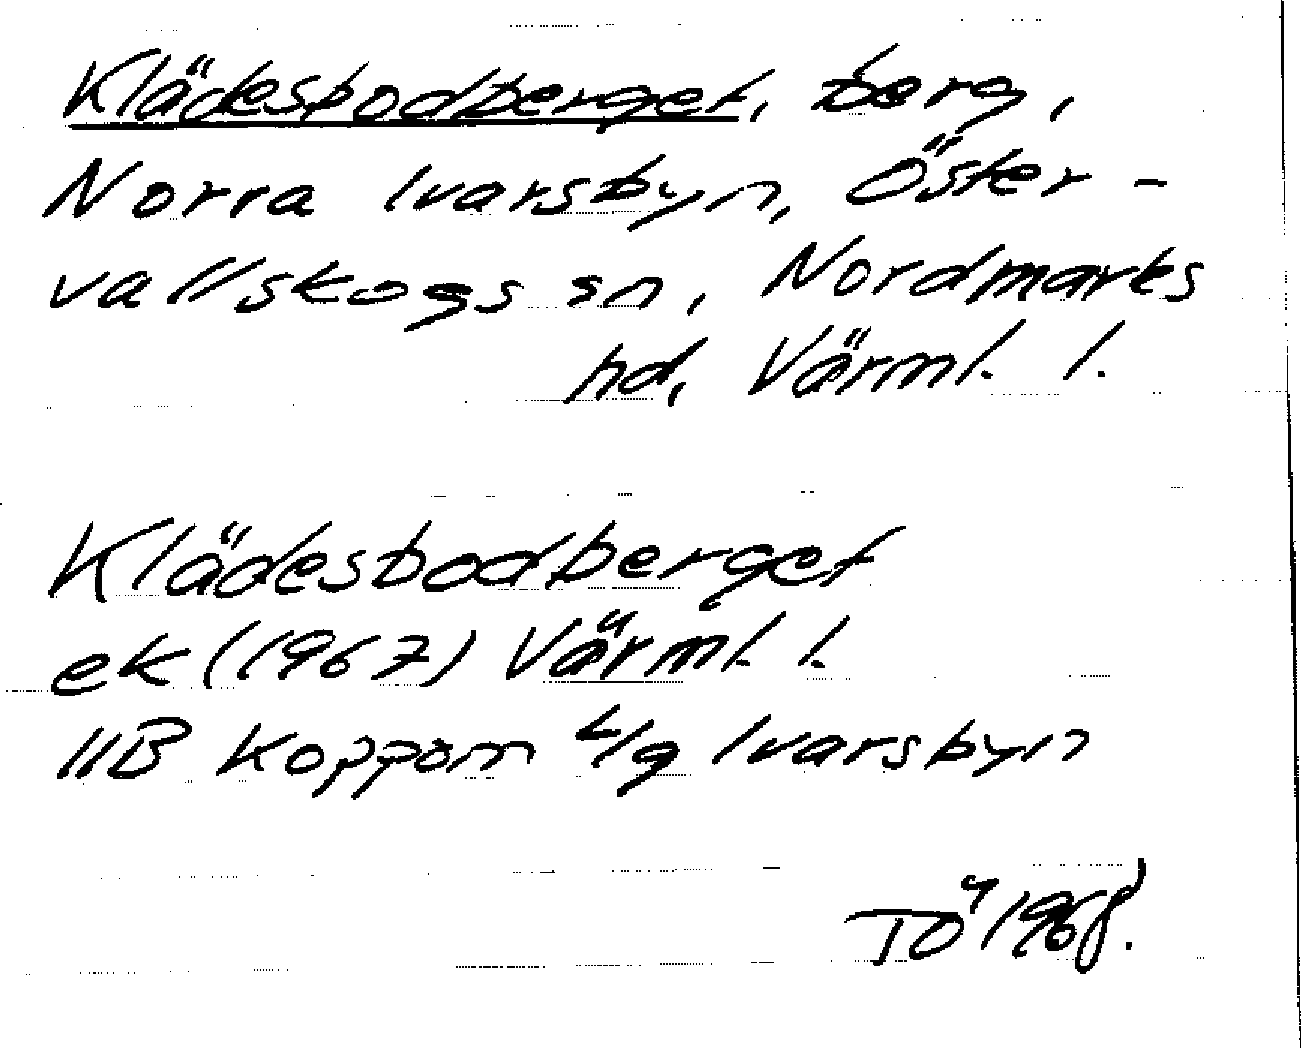 Klädesbodberget, berg,
Norra Ivarsbyn, Öster-
vallskogs sn, Nordmarks
hd, Värml. l.
Klädesbodberget
ek (1967) Värml. l.
11B Koppom 4/9 Ivarsbyn
TÖ 1968.